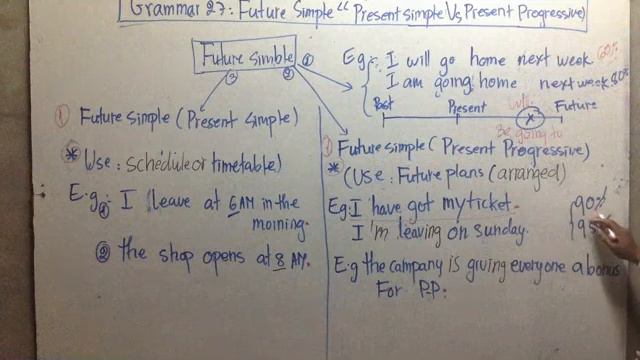 Grammar 27: Future Simple "Present Simple Vs Present Progressive)
Future Simble ①
③ ②
Eg: I will go home next week 60%
I am going home next week 80%
Past Present Future
will
Be going to
① Future simple (Present Simple)
* Use: schedule or timetable)
E.g① I leave at 6 AM in the
moining.
② the shop opens at 8 AM.
Future simple (Present Progressive)
* (Use: Future plans (arranged)
Eg: I have got my ticket.
I'm leaving on sunday.
90%
E.g the company is giving everyone a bonus
For P.P: